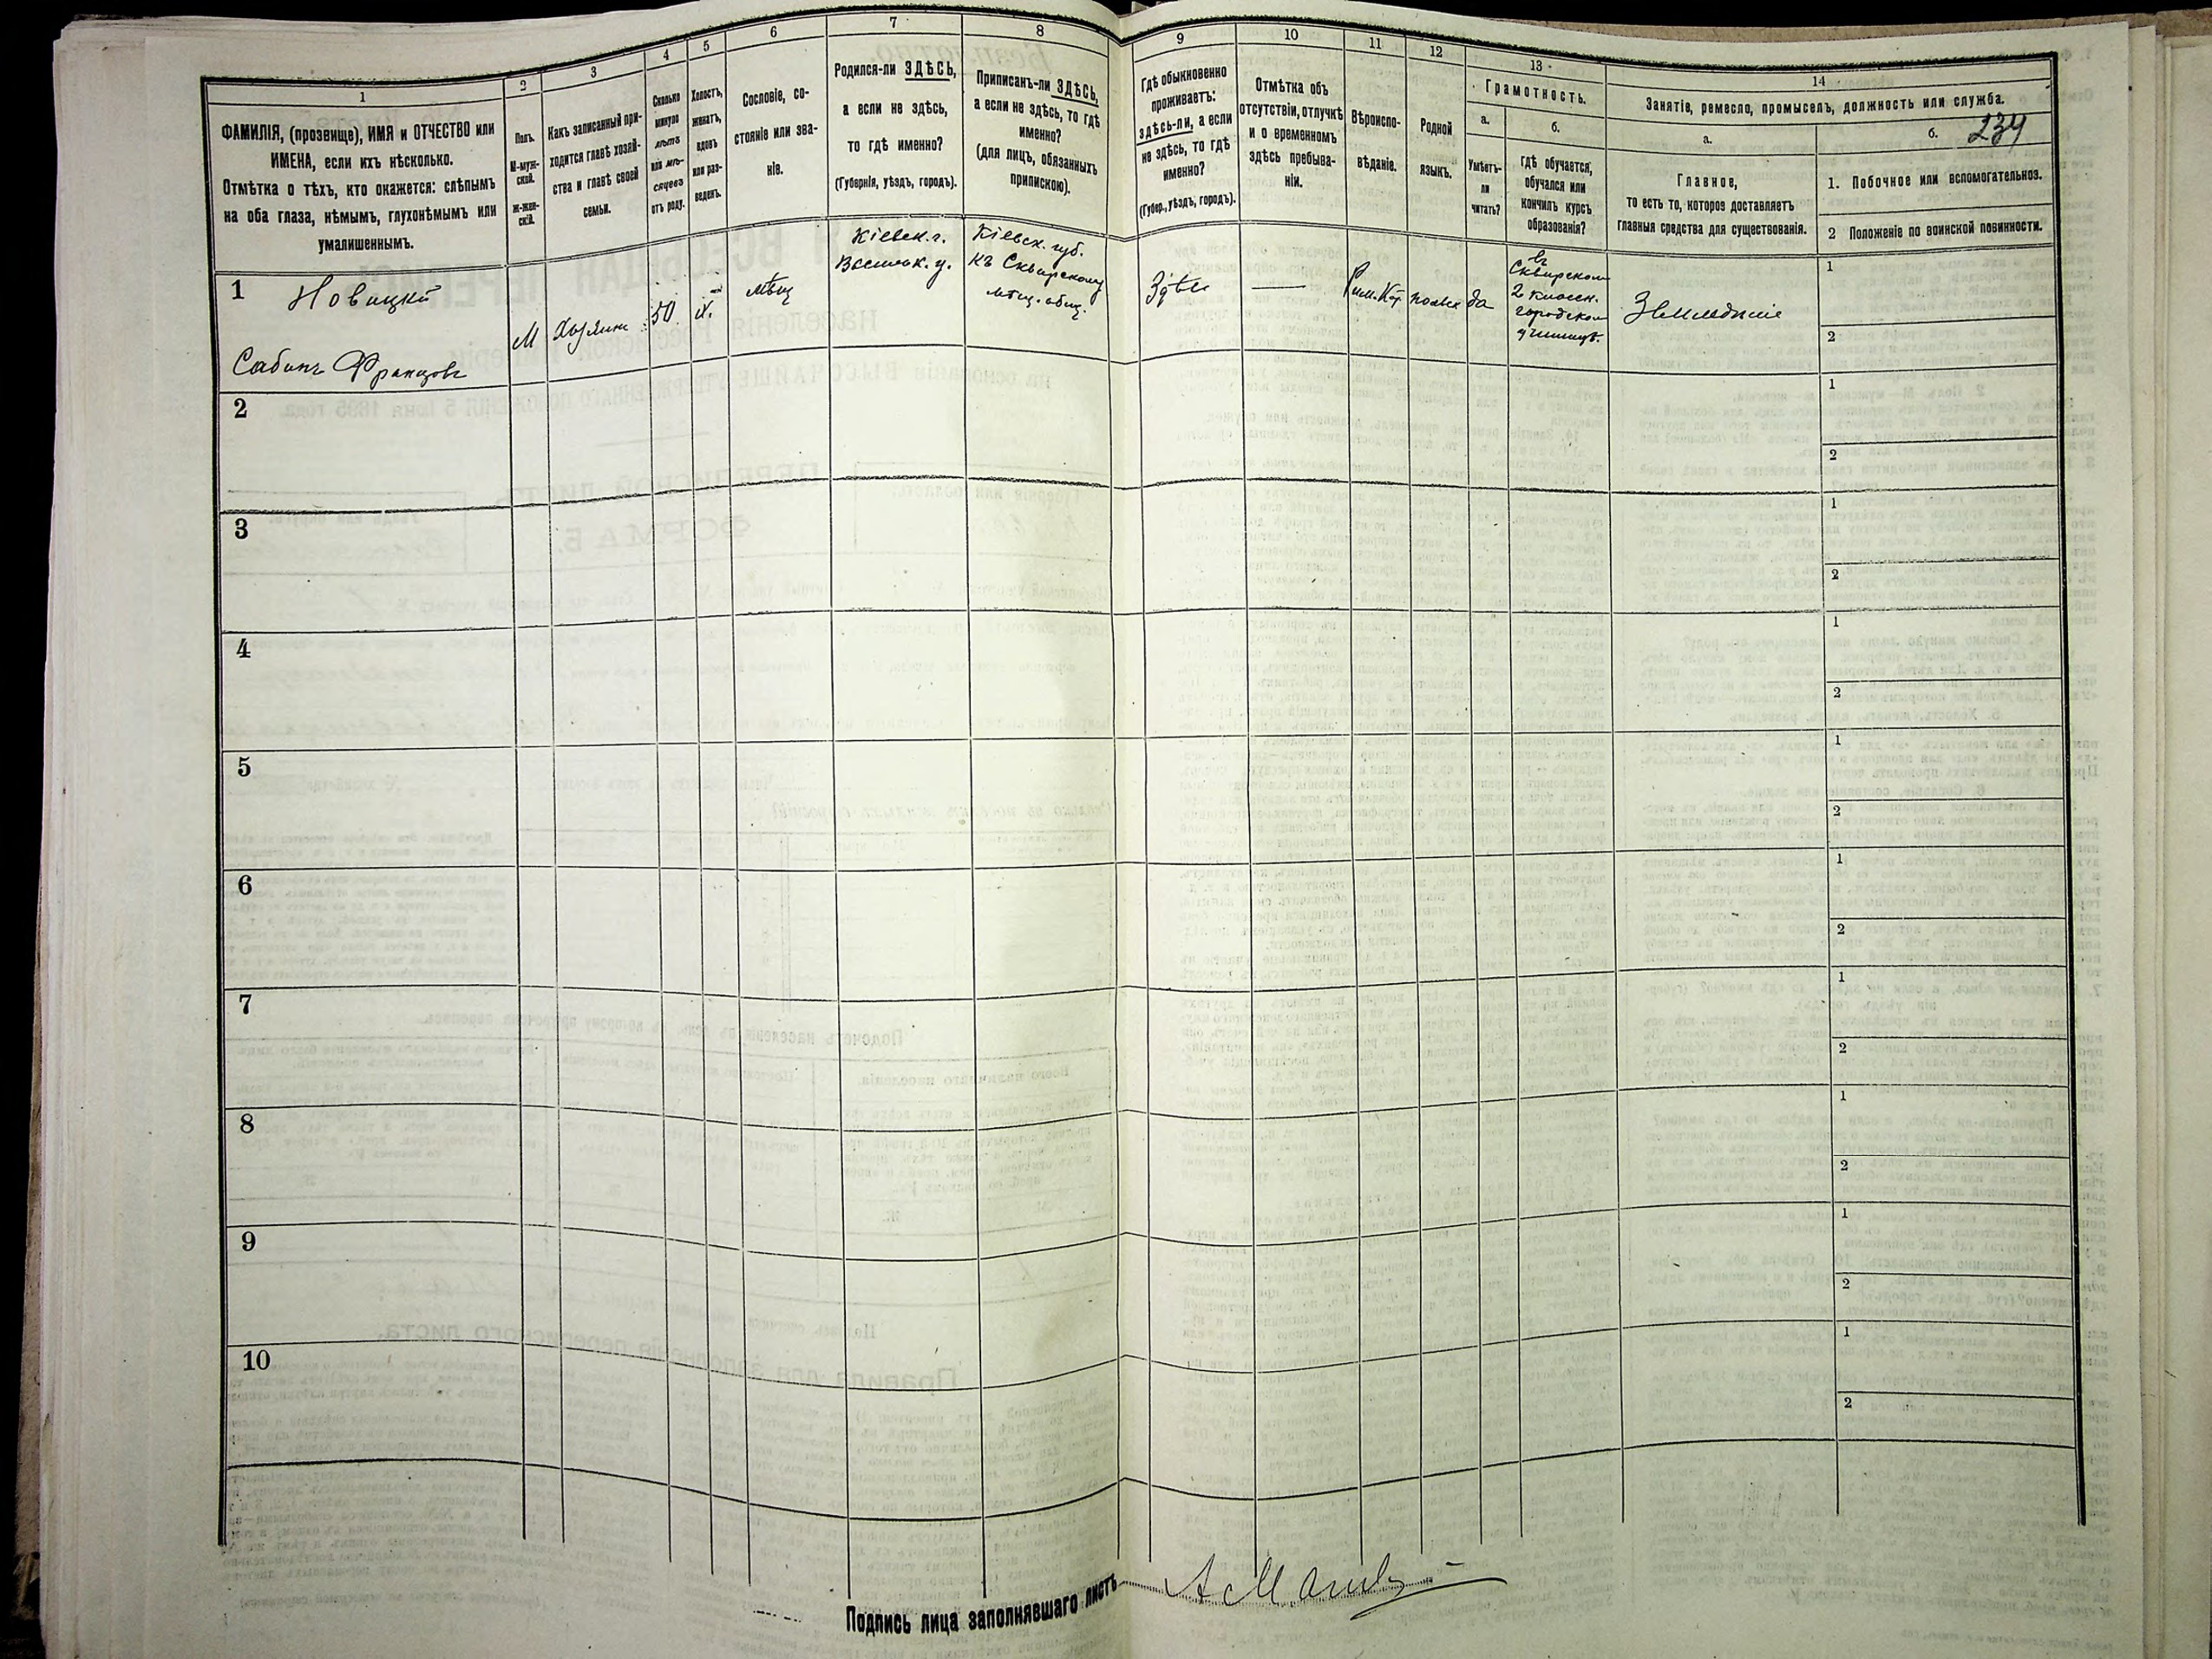 1
ФАМИЛІЯ, (прозвище), ИМЯ и ОТЧЕСТВО или
ИМЕНА, если ихъ нѣсколько.
Отмѣтка о тѣхъ, кто окажется: слѣпымъ
на оба глаза, нѣмымъ, глухонѣмымъ или
умалишеннымъ.
2
Полъ.
М-муж-
ской.
ж-жен-
скій.
3
Какъ записанный при-
ходится главѣ хозяй-
ства и главѣ своей
семьи.
4
Сколько
минуло
лѣтъ
или мѣ-
сяцевъ
отъ роду.
5
Холостъ,
женатъ,
вдовъ
или раз-
веденъ.
6
Сословіе, со-
стояніе или зва-
ніе.
7
Родился-ли ЗДѢСЬ,
а если не здѣсь,
то гдѣ именно?
(Губернія, уѣздъ, городъ).
8
Приписанъ-ли ЗДѢСЬ,
а если не здѣсь, то гдѣ
именно?
(для лицъ, обязанныхъ
припискою).
9
Гдѣ обыкновенно
проживаетъ:
здѣсь-ли, а если
не здѣсь, то гдѣ
именно?
(Губер., уѣздъ, городъ).
10
Отмѣтка объ
отсутствіи, отлучкѣ
и о временномъ
здѣсь пребыва-
ніи.
11
Вѣроиспо-
вѣданіе.
12
Родной
языкъ.
13
Грамотность.
а.
Умѣетъ-
ли
читать?
б.
гдѣ обучается,
обучался или
кончилъ курсъ
образованія?
14
Занятіе, ремесло, промыселъ, должность или служба.
а.
Главное,
то есть то, которое доставляетъ
главныя средства для существованія.
б.
239
1. Побочное или вспомогательное.
2 Положеніе по воинской повинности.
1
Новицкій
Сабинъ Францовъ
М
Хозяинъ
50
х.
мѣщ
Кіевск. г.
Васильк. у.
Кіевск. губ.
къ Сквирскому
мѣщ. общ.
Здѣсь
—
Рим. Кат.
польск
да
въ
Сквирском
2 классн.
городском
училищѣ.
Земледѣліе
1
2
2
1
2
3
1
2
4
1
2
5
1
2
6
1
2
7
1
2
8
1
2
9
1
2
10
1
2
Подпись лица заполнявшаго листъ